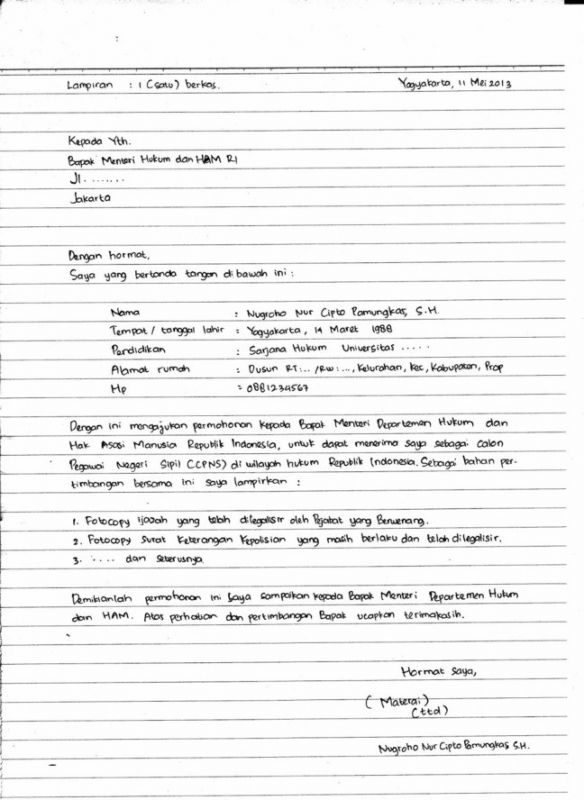 Lampiran : 1 (satu) berkas. Yogyakarta, 11 Mei 2013
Kepada Yth.
Bapak Menteri Hukum dan HAM RI
Jl. ........
Jakarta
Dengan hormat,
Saya yang bertanda tangan dibawah ini :
Nama : Nugroho Nur Cipto Pamungkas, S.H.
Tempat / tanggal lahir : Yogyakarta, 14 Maret 1988
Pendidikan : Sarjana Hukum Universitas .....
Alamat rumah : Dusun RT:.. /RW:..., Kelurahan, Kec, Kabupaten, Prop
Hp : 0881234567
Dengan ini mengajukan permohonan kepada Bapak Menteri Departemen Hukum dan
Hak Asasi Manusia Republik Indonesia, untuk dapat menerima saya sebagai Calon
Pegawai Negeri Sipil (CPNS) di wilayah hukum Republik Indonesia. Sebagai bahan per-
timbangan bersama ini saya lampirkan :
1. Fotocopy ijazah yang telah dilegalisir oleh Pejabat yang Berwenang.
2. Fotocopy Surat Keterangan Kepolisian yang masih berlaku dan telah dilegalisir.
3. ..... dan seterusnya
Demikianlah permohonan ini Saya sampaikan kepada Bapak Menteri Departemen Hukum
dan HAM. Atas perhatian dan pertimbangan Bapak ucapkan terimakasih.
Hormat Saya,
( Materai)
(ttd)
Nugroho Nur Cipto Pamungkas S.H.